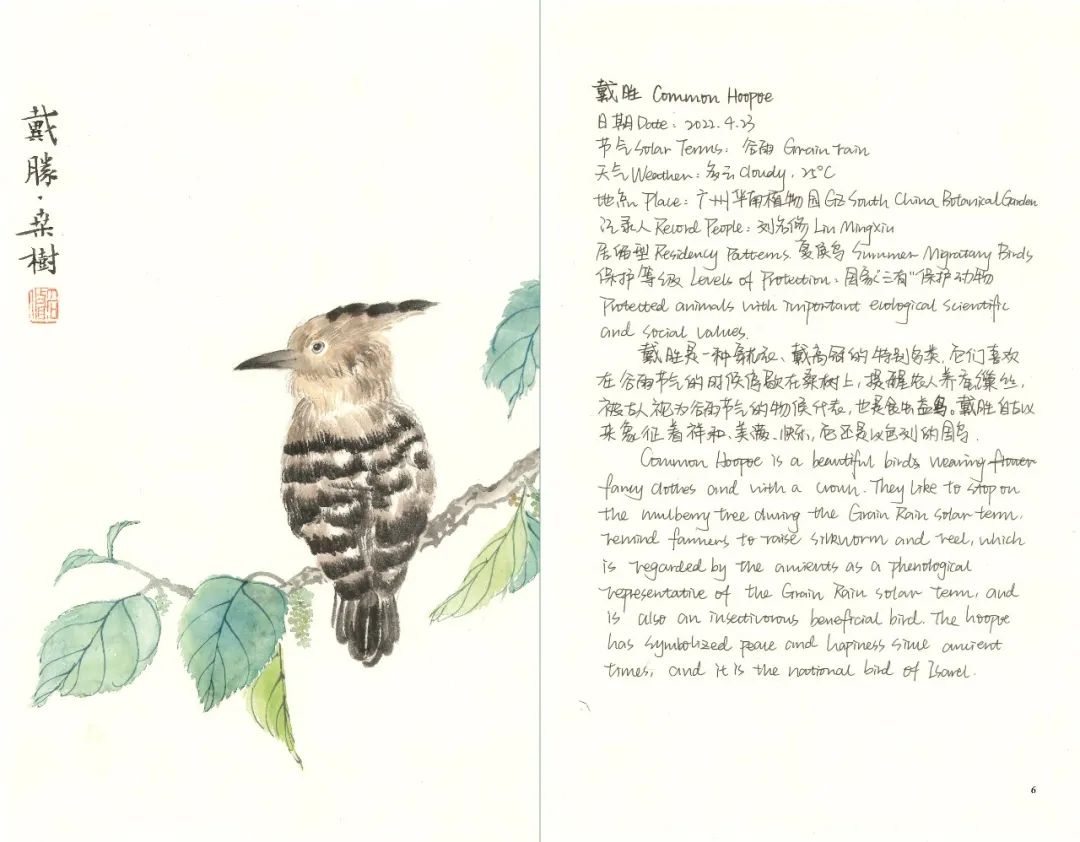 戴勝·桑樹
戴胜 Common Hoopoe
日期Date：2022.4.23
节气Solar Terms：谷雨 Grain rain
天气Weather：多云cloudy，25°C
地点 Place：广州华南植物园GZ South China Botanical Garden
记录人Record People：刘名修 Liu Mingxiu
居留型 Residency Patterns 夏候鸟 Summer Migratary Birds
保护等级 Levels of Protection：国家"三有"保护动物
Protected animals with important ecological scientific
and social values.
戴胜是一种穿花衣、戴高冠的特别鸟类，它们喜欢
在谷雨节气的时候停歇在桑树上，提醒农人养蚕缫丝，
被古人视为谷雨节气的物候代表，也是食虫益鸟。戴胜自古以
来象征着祥和、美满、快乐，它还是以色列的国鸟．
Common Hoopoe is a beautiful birds wearing flower
fancy clothes and with a crown. They like to stop on
the mulberry tree during the Grain Rain solar term,
remind farmers to raise silkworm and reel, which
is regarded by the ancients as a phenological
representative of the Grain Rain solar term, and
is also an insectivorous beneficial bird. The hoopoe
has symbolized peace and hapiness since ancient
times, and it is the national bird of Isarel.
6